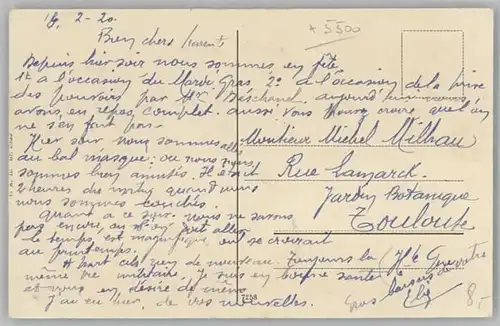 16. 2-20.
+ 5500
Bien chers parents
Depuis hier soir nous sommes en fête
1º à l'occasion du Mardi Gras 2º à l'occasion de la prise
des pouvoirs par Mr Deschanel, aujourd'hui nous
avons, repos complet. aussi vous pouvez croire qu'on
ne s'en fait pas.
Hier soir nous sommes allés
au bal masqué où nous nous
sommes bien amusés. Il était
2 heures de matin quand nous
nous sommes couchés.
Quant à ce soir nous ne savons
pas encore, où on doit aller
le temps, est magnifique on se croirait
au printemps.
A part cela rien de nouveau. Toujours la
même vie militaire, Je suis en bonne santé
et vous en désire de même
J'ai eu hier, de vos nouvelles.
Monsieur Michel Milhau
Rue Lamarck
Jardin Botanique
Toulouse
Hte Garonne
Gros baisers de votre
Eloi
7258
8.-